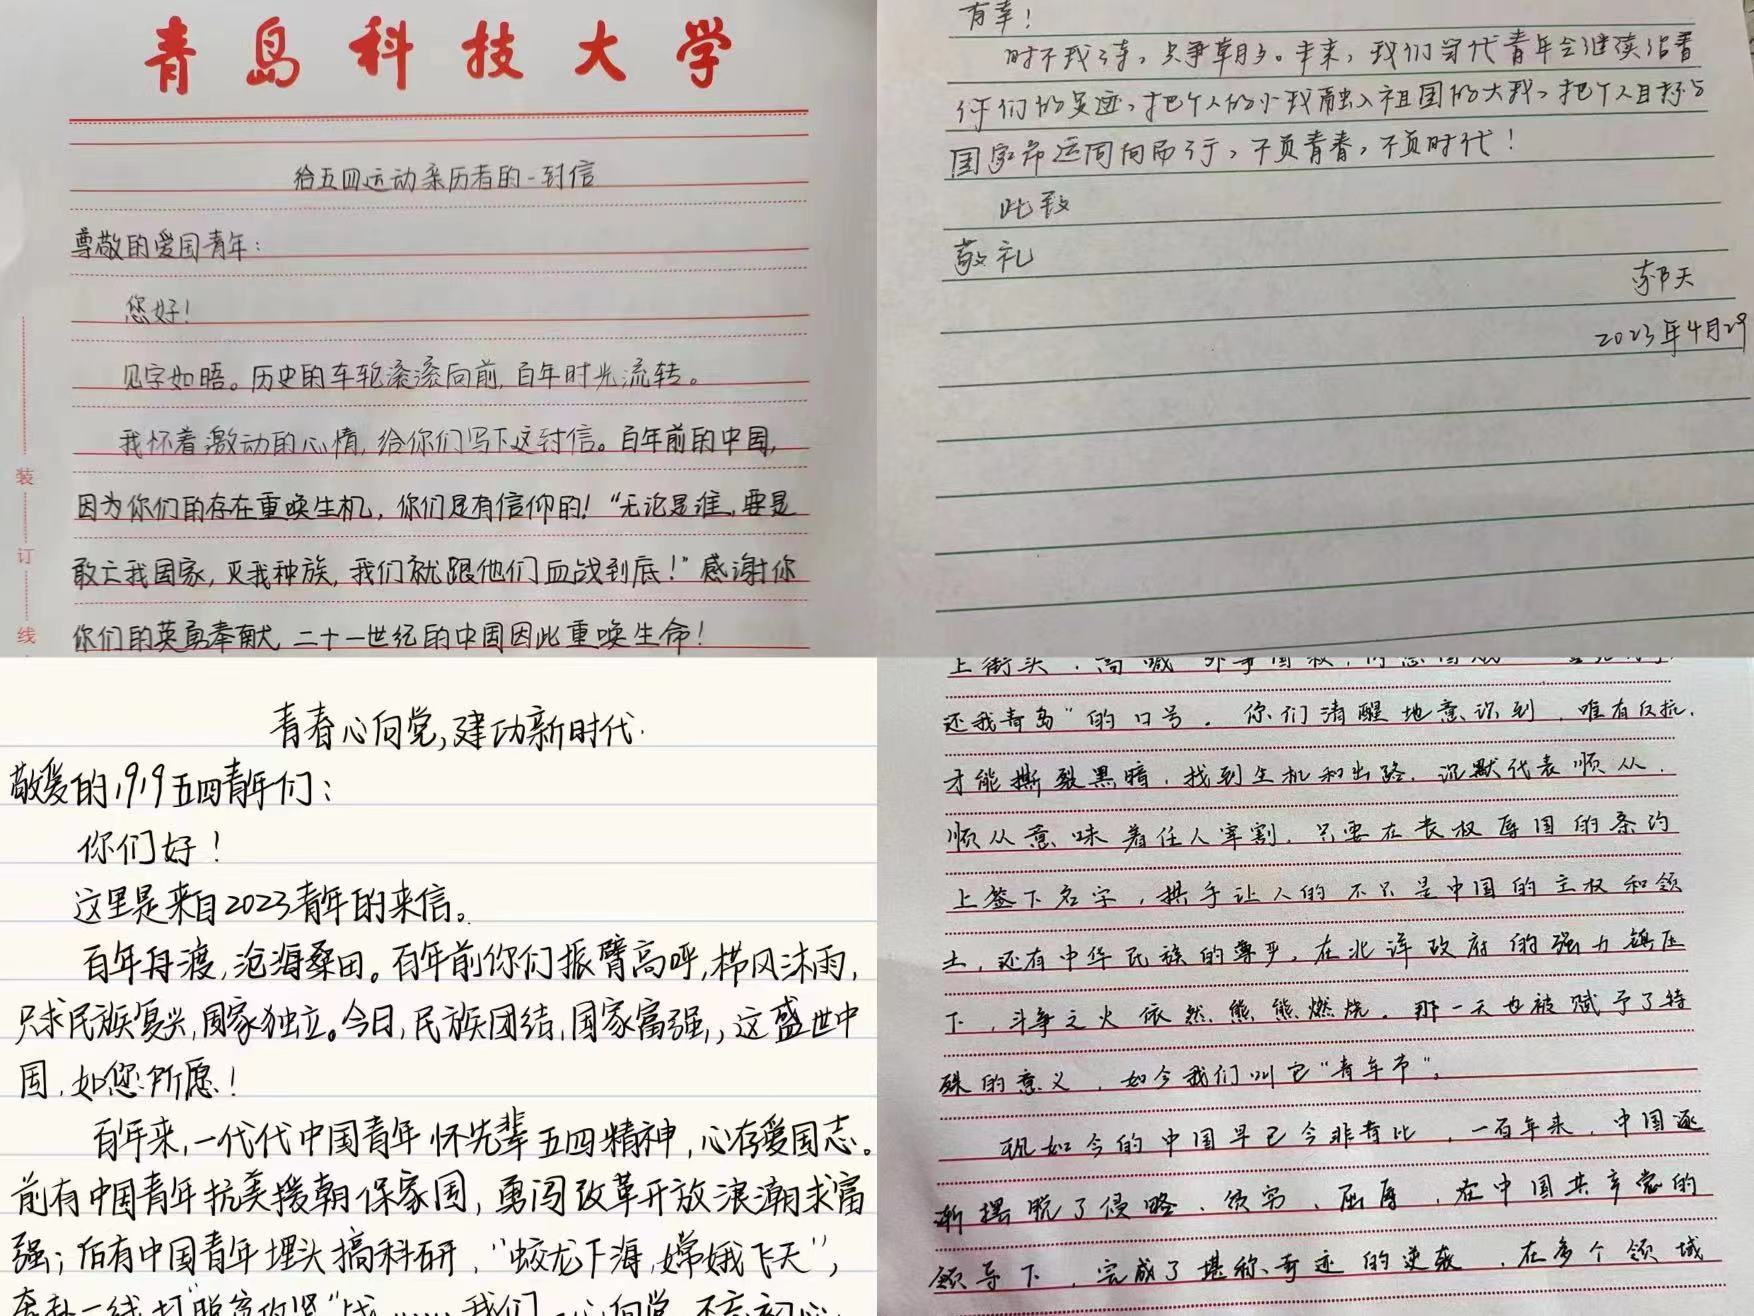 青岛科技大学
给五四运动亲历者的一封信
尊敬的爱国青年：
您好！
见字如晤。历史的车轮滚滚向前，百年时光流转。
我怀着激动的心情，给你们写下这封信。百年前的中国，
因为你们的存在重唤生机，你们是有信仰的！“无论是谁，要是
敢亡我国家，灭我种族，我们就跟他们血战到底！”感谢你
你们的英勇奉献，二十一世纪的中国因此重唤生命！
装
订
线
有幸！
时不我待，只争朝夕。未来，我们当代青年会继续沿着
你们的足迹，把个人的小我融入祖国的大我，把个人目标与
国家命运同向而行，不负青春，不负时代！
此致
敬礼
郭天
2023年4月29
青春心向党，建功新时代.
敬爱的1919五四青年们：
你们好！
这里是来自2023青年的来信。
百年舟渡，沧海桑田。百年前你们振臂高呼，栉风沐雨，
只求民族复兴，国家独立。今日，民族团结，国家富强，，这盛世中
国，如您所愿！
百年来，一代代中国青年怀先辈五四精神，心存爱国志。
前有中国青年抗美援朝保家国，勇闯改革开放浪潮求富
强；后有中国青年埋头搞科研，“蛟龙下海，嫦娥飞天”，
奔赴一线打脱贫攻坚”战……我们一心向党，不忘初心
上街头，高喊“外争国权，
还我青岛”的口号。你们清醒地意识到，唯有反抗，
才能撕裂黑暗，找到生机和出路，沉默代表顺从，
顺从意味着任人宰割，只要在丧权辱国的条约
上签下名字，拱手让人的不只是中国的主权和领
土，还有中华民族的尊严，在北洋政府的强力镇压
下，斗争之火依然熊熊燃烧。那一天也被赋予了特
殊的意义，如今我们叫它“青年节”。
现如今的中国早已今非昔比，一百年来，中国逐
渐摆脱了侵略、贫穷、屈辱，在中国共产党的
领导下，完成了堪称奇迹的逆袭，在多个领域